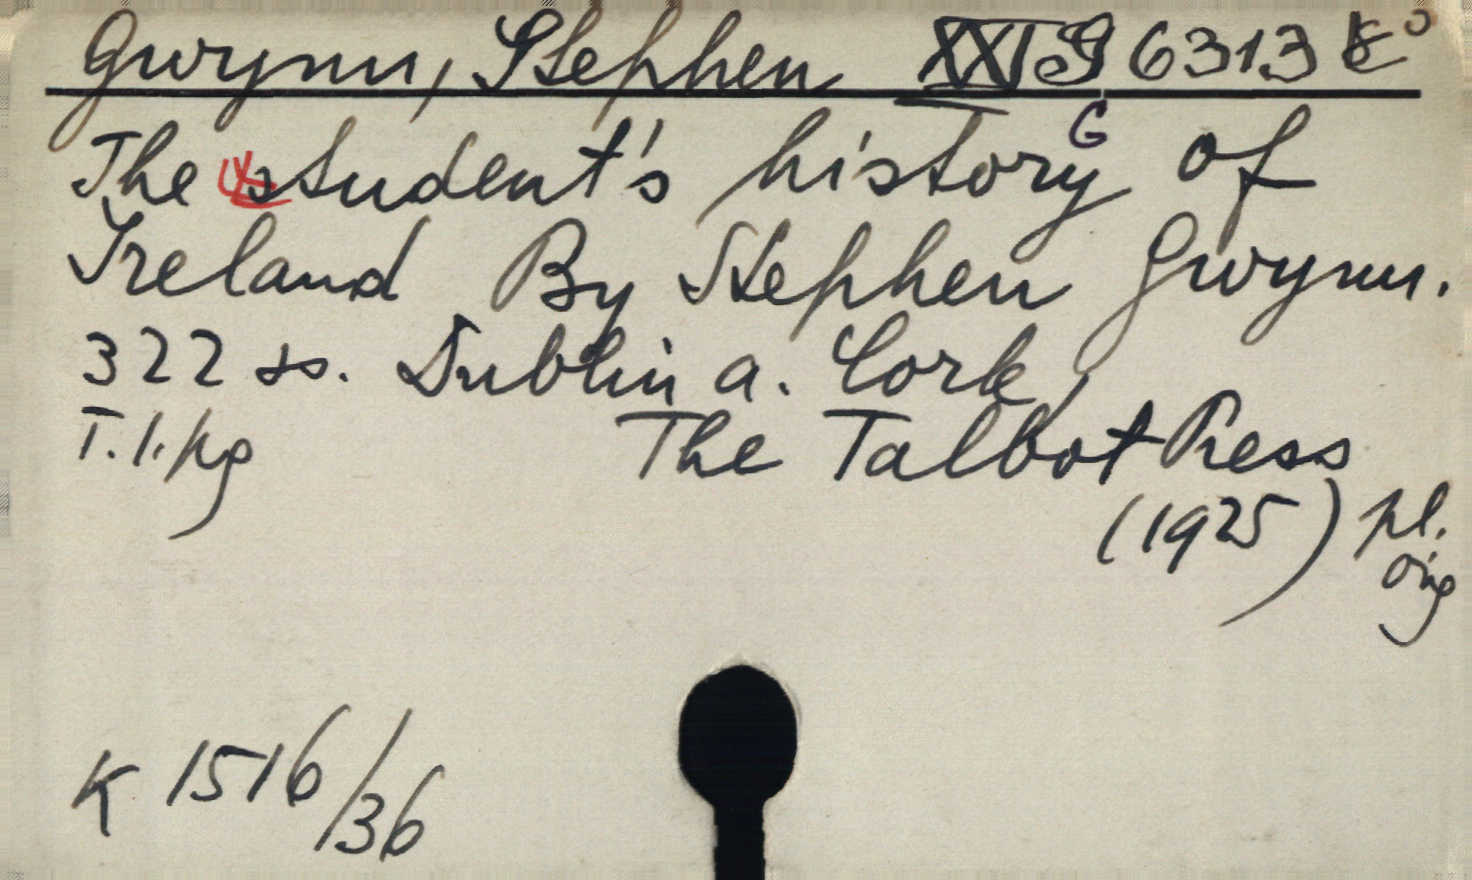 Gwynn, Stephen XXI G 6313 k°
G
The student's history of
Ireland By Stephen Gwynn.
322 ss. Dublin a. Cork
T. l. kg The Talbot Press
(1925) pl.
óng
K 1516/36